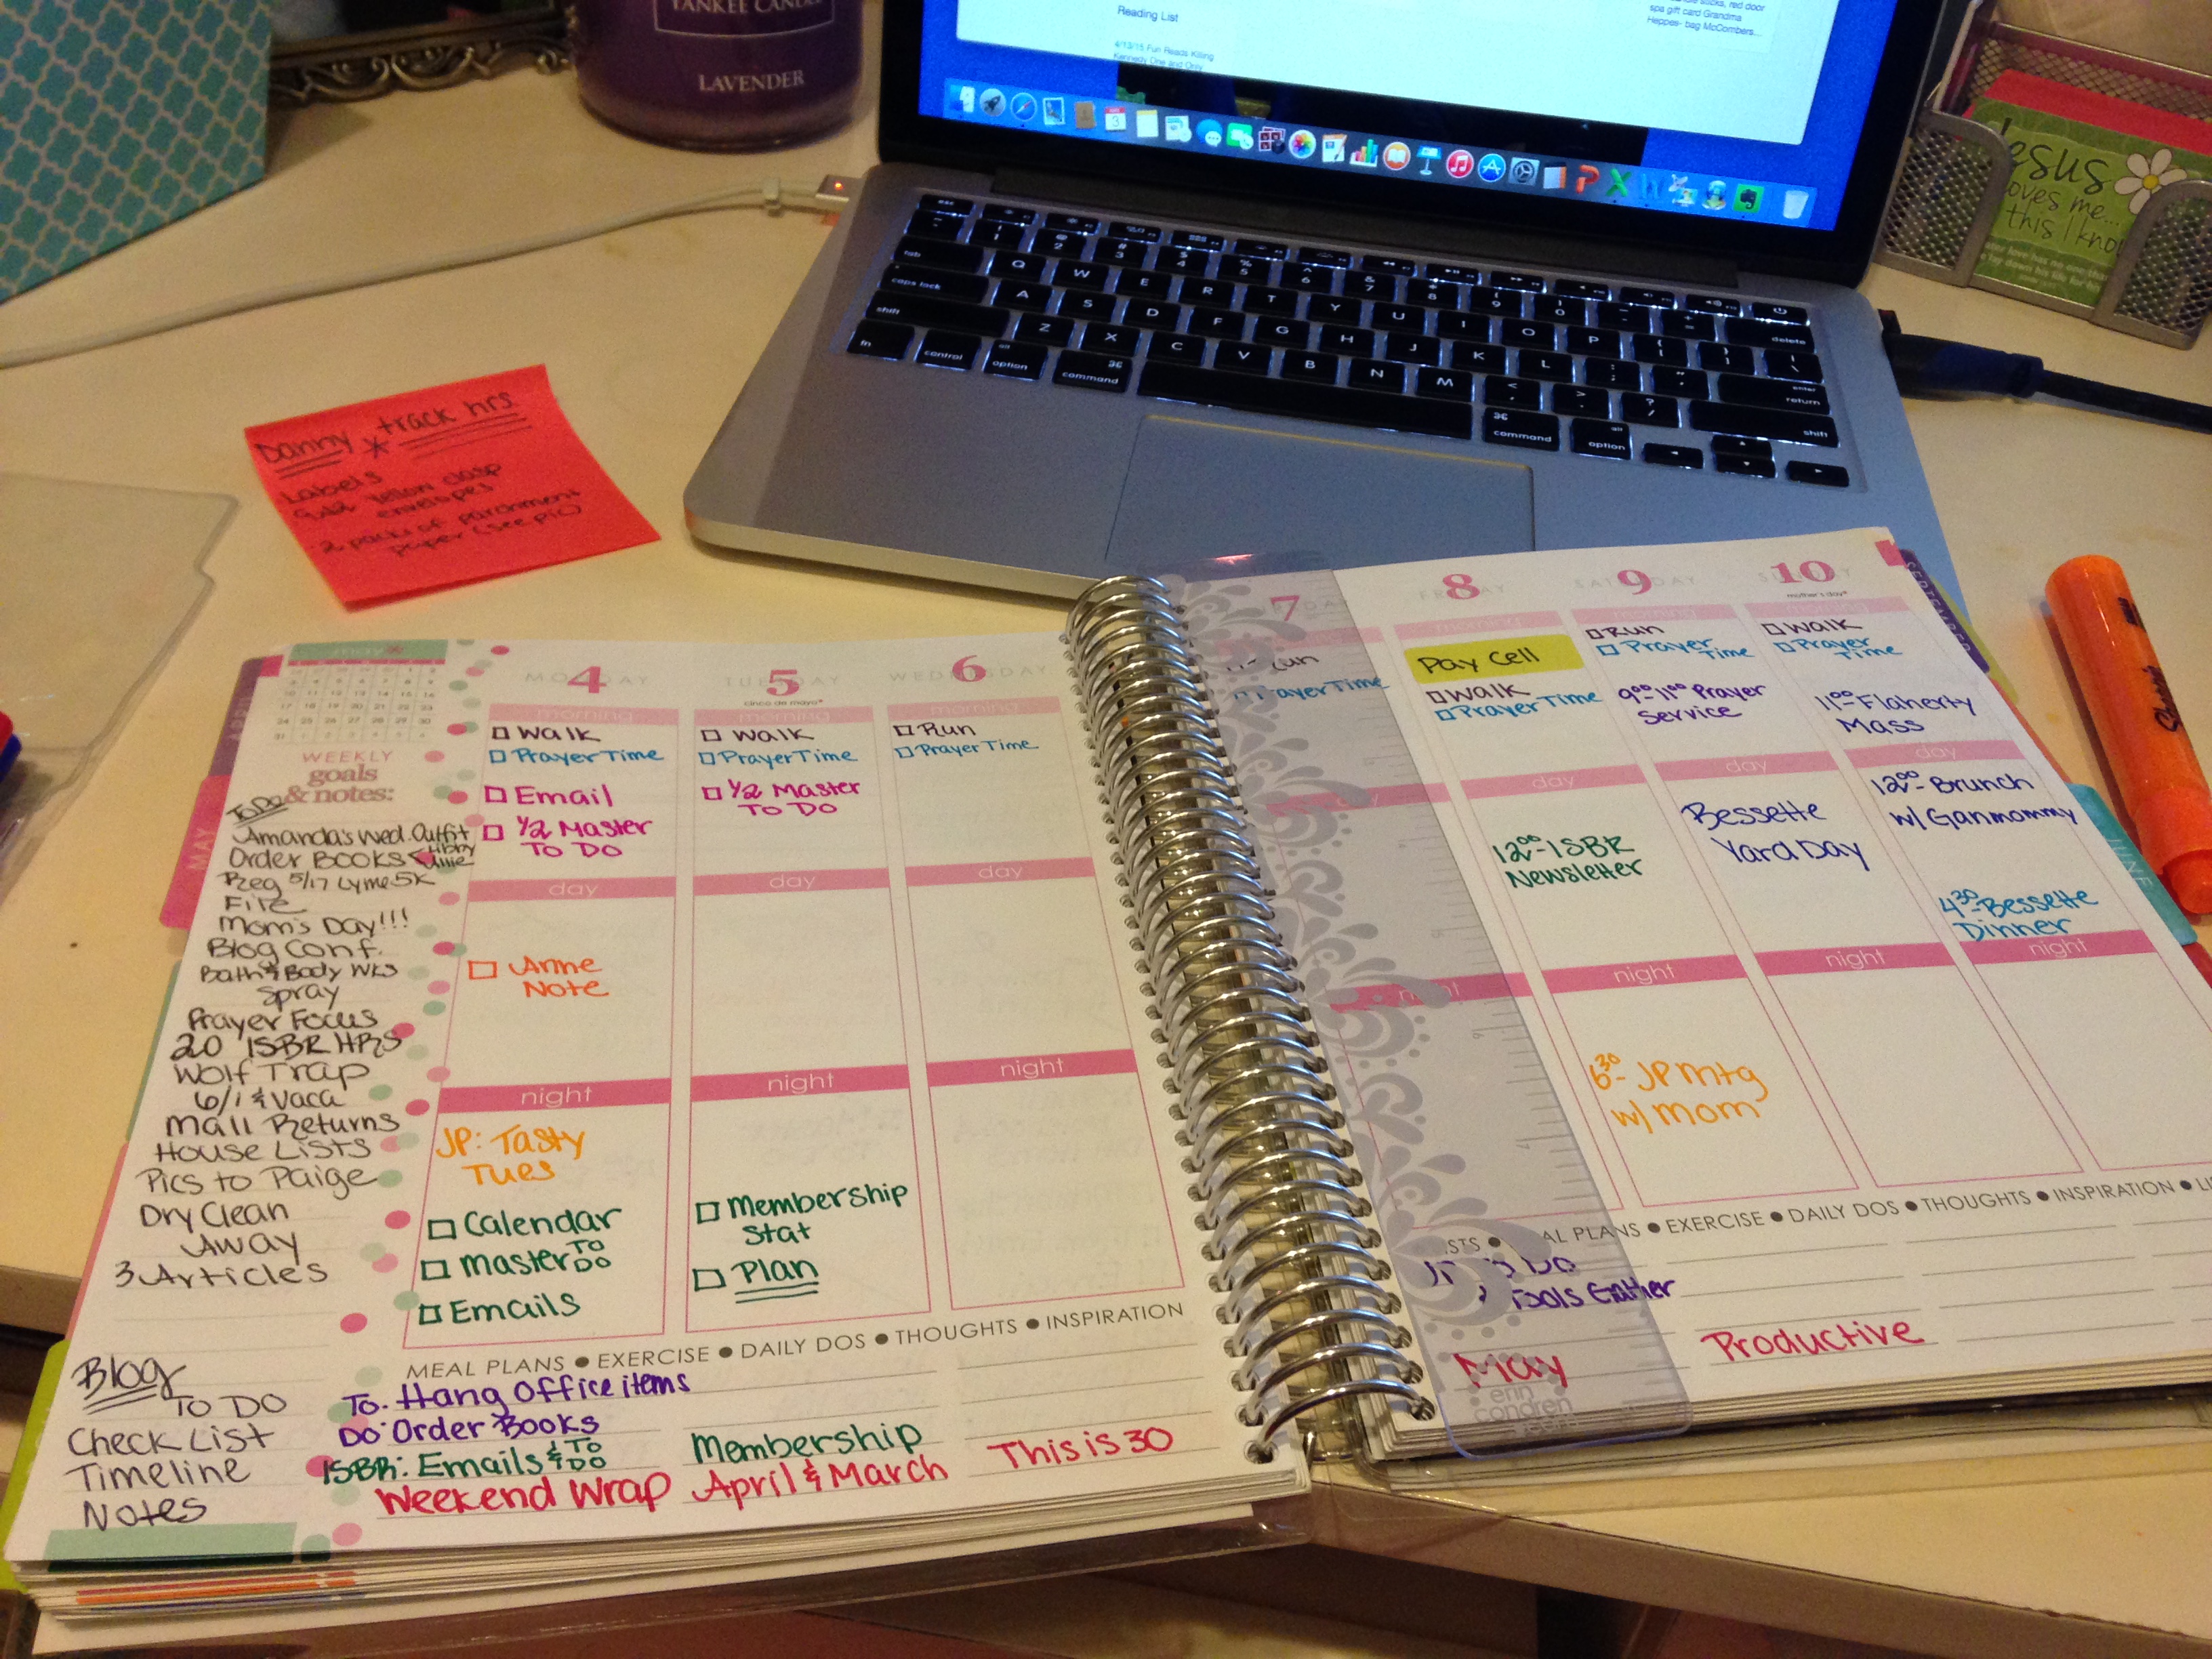 YANKEE CANDLE
LAVENDER
Reading List
4/13/15 Fun Reads Killing
Kennedy One and Only
red door
spa gift card Grandma
Heppes- bag McCombers...
Jesus
loves me...
this I know
Danny * track hrs
Labels
yellow clasp
envelopes
2 packs of parchment
paper (see pic)
tab
caps lock
shift
fn
control
option
command
command
option
delete
enter
return
shift
Q W E R T Y U I O P
A S D F G H J K L
Z X C V B N M
may
WEEKLY
goals
& notes:
To Do
Amanda's Wed. Outfit
Order Books < Libby
Allie
Reg 5/17 Lyme 5K
File
Mom's Day!!!
Blog Conf.
Bath & Body Wks
Spray
Prayer Focus
20 ISBR HRS
Wolf Trap
6/1 & Vaca
Mall Returns
House Lists
Pics to Paige
Dry Clean
Away
3 Articles
Blog
TO DO
Check List
Timeline
Notes
APRIL
MAY
MONDAY
4
morning
Walk
Prayer Time
Email
1/2 Master
TO DO
day
Anne
Note
night
JP: Tasty
Tues
Calendar
Master TO DO
Emails
TUESDAY
5
cinco de mayo*
morning
Walk
Prayer Time
1/2 Master
TO DO
day
night
Membership
Stat
Plan
WEDNESDAY
6
morning
Run
Prayer Time
day
night
MEAL PLANS ● EXERCISE ● DAILY DOS ● THOUGHTS ● INSPIRATION
To. Hang Office items
Do: Order Books
ISBR: Emails & TO DO
Weekend Wrap
Membership
April & March
This is 30
7
Run
Prayer Time
day
night
FRIDAY
8
morning
Pay Cell
Walk
Prayer Time
day
12:00- ISBR
Newsletter
night
6:30- JP Mtg
w/ Mom
SATURDAY
9
morning
Run
Prayer
Time
9:00-11:00 Prayer
Service
day
Bessette
Yard Day
night
SUNDAY
10
mother's day*
morning
Walk
Prayer
Time
11:00- Flaherty
Mass
day
12:00- Brunch
w/ Ganmommy
4:30- Bessette
Dinner
night
MEAL PLANS ● EXERCISE ● DAILY DOS ● THOUGHTS ● INSPIRATION ●
Tools Gather
May
Productive
erin
condren
SEPTEMBER
JUNE
Sharpie